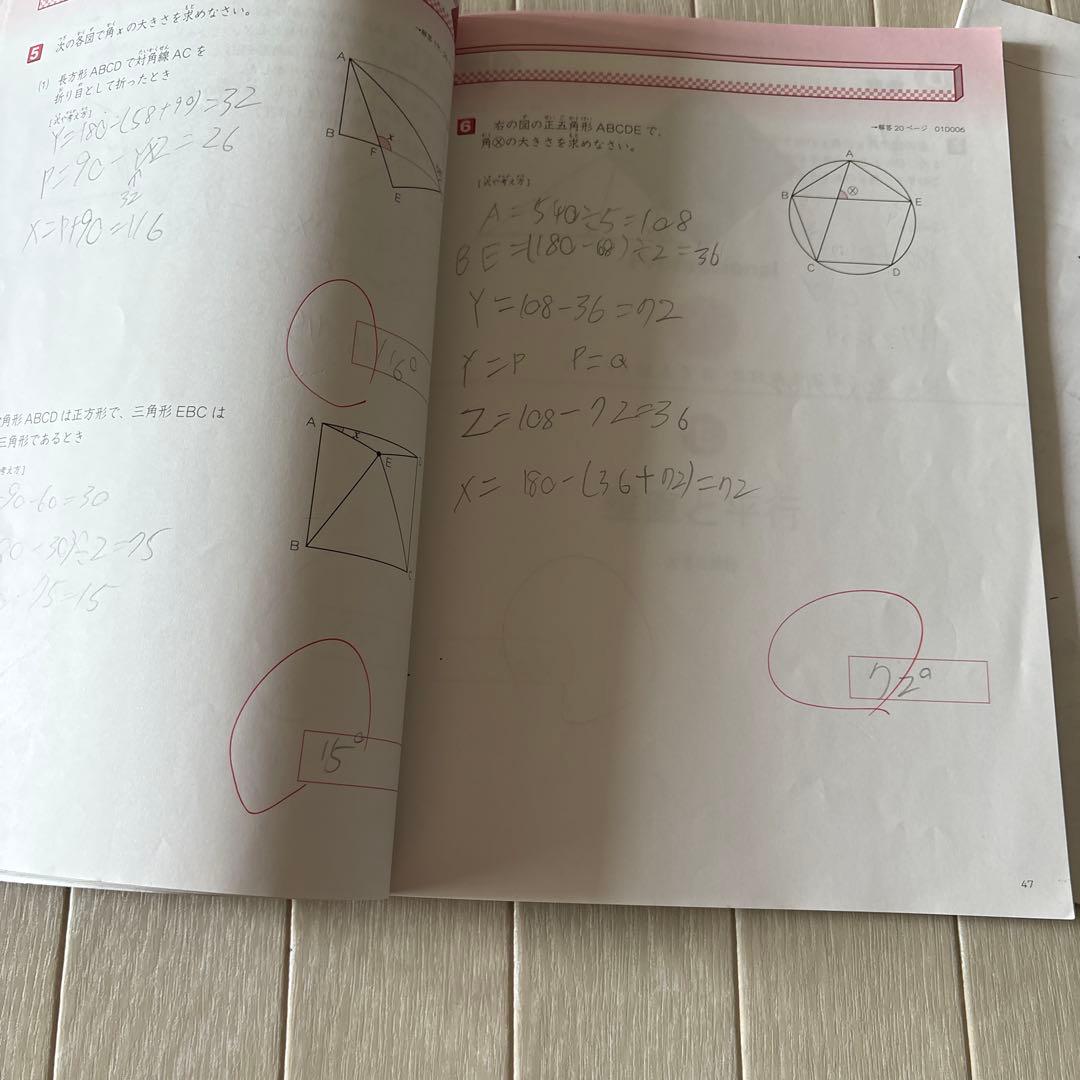 5 次の各図で角xの大きさを求めなさい。
(1) 長方形ABCDで対角線ACを
折り目として折ったとき
[式や考え方]
Y=180-(58+90)=32
P=90- =26
32
X=P+90=116
A
B
F
x
E
116°
角形ABCDは正方形で、三角形EBCは
三角形であるとき
考え方]
90-60=30
30)÷2=75
75=15
A
x
E
B
15°
→解答20ページ 010006
6 右の図の正五角形ABCDEで、
角ⓧの大きさを求めなさい。
[式や考え方]
A=540÷5=108
BE=(180-108)÷2=36
Y=108-36=72
Y=P P=Q
Z=108-72=36
X=180-(36+72)=72
A
B
x
E
C
D
72°
47